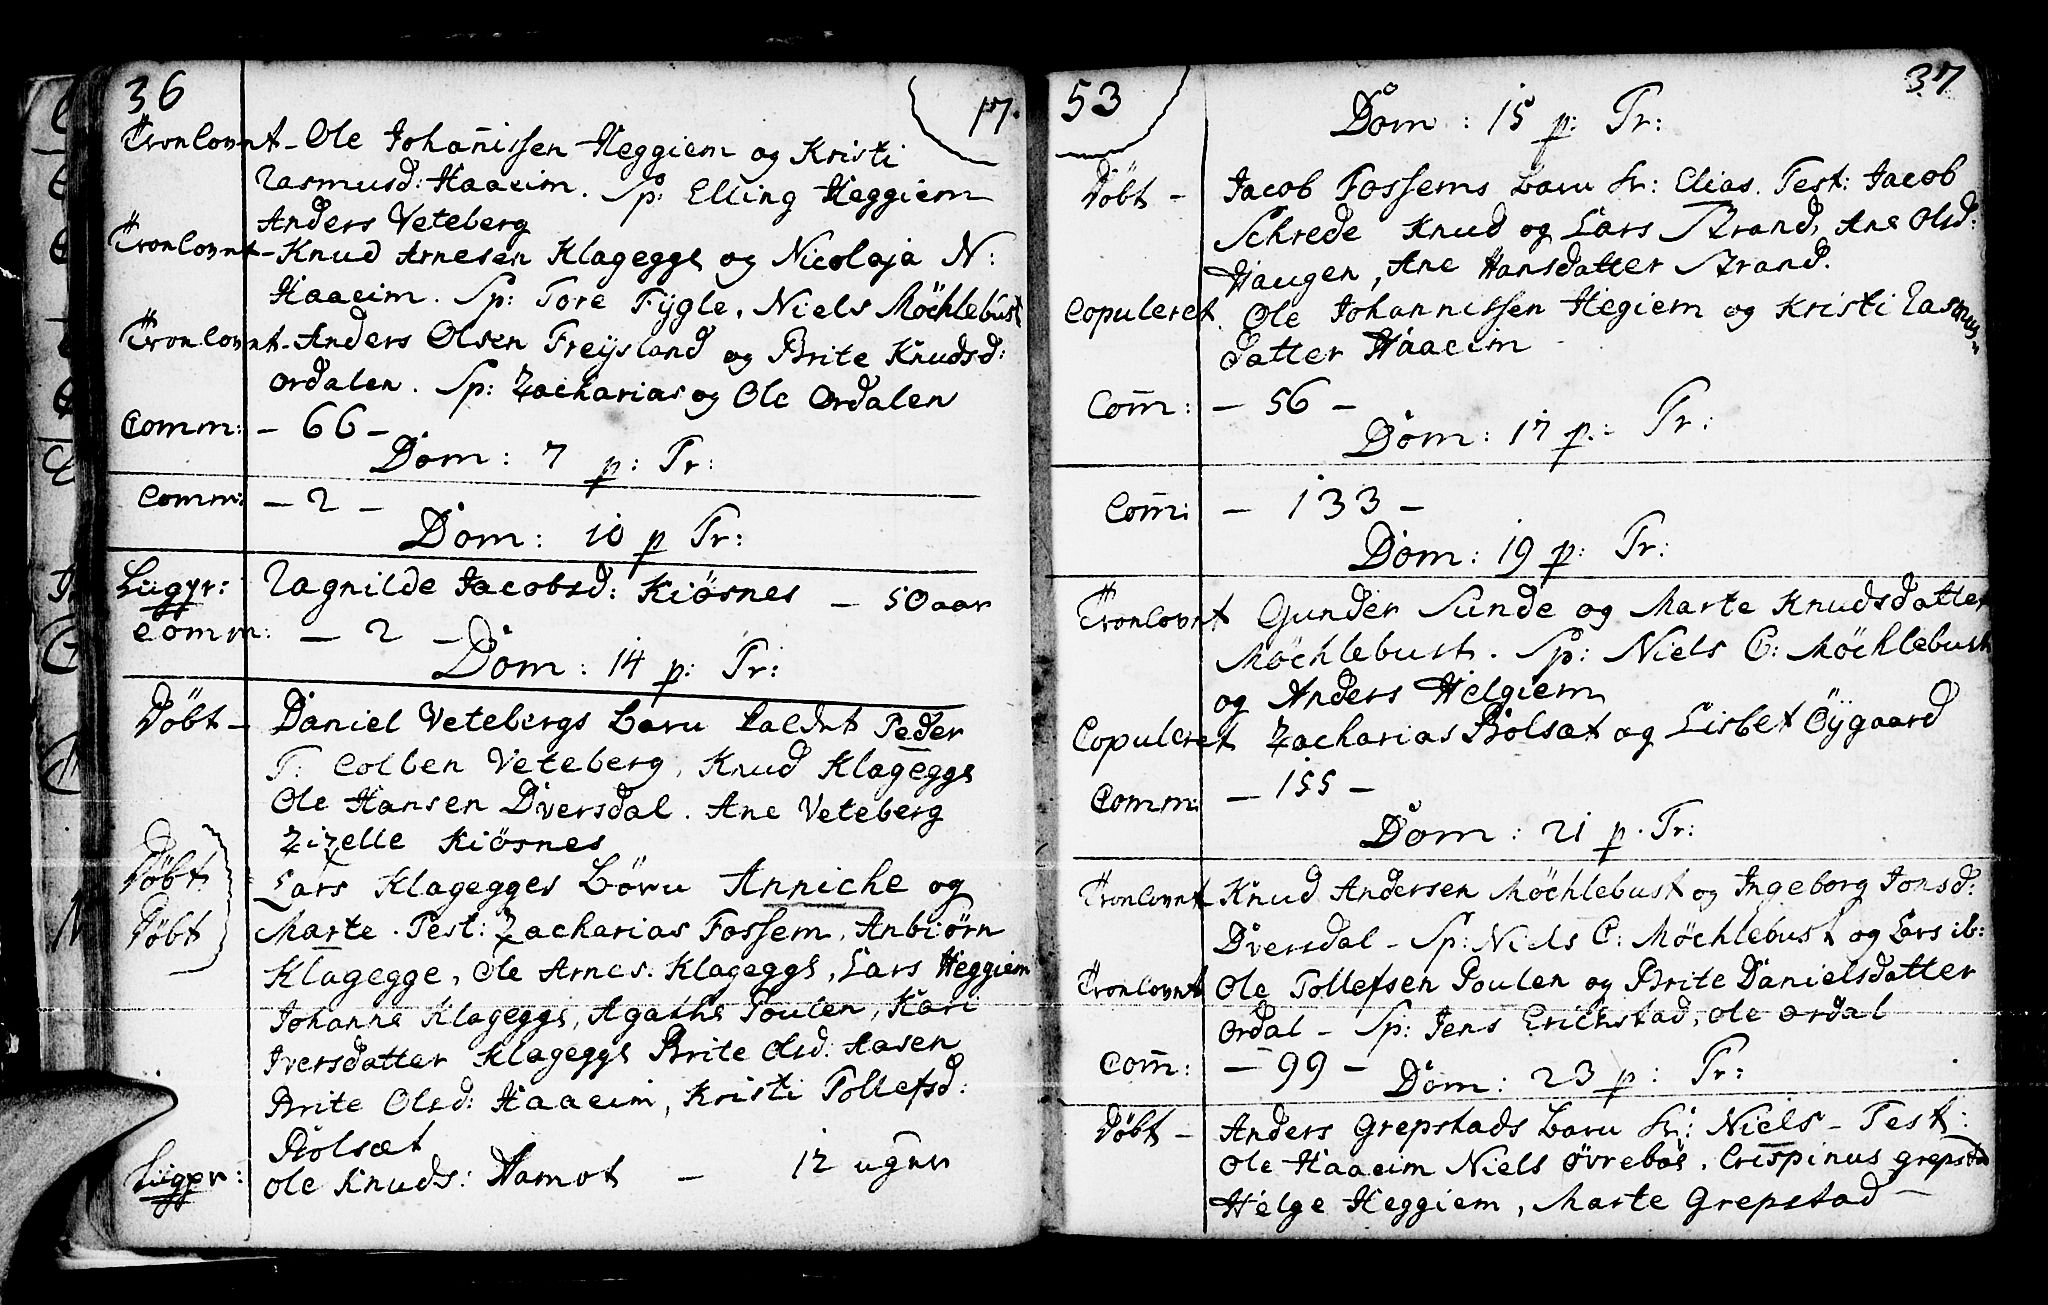 36 17.
Tronlovnt - Ole Johannissen Heggiem og Kristi
Rasmusd: Haaeim. Sp: Elling Heggiem
Anders Veteberg
Tronlovnt - Knud Arnesen Klagegge og Nicolaja N:
Haaeim. Sp: Tore Fygle, Niels Möchlebust
Tronlovnt - Anders Olsen Freysland og Brite Knudsd:
Ordalen. Sp: Zacharias og Ole Ordalen
Comm: - 66 -
Dom: 7 p: Tr:
Comm: - 2 -
Dom: 10 p Tr:
Liigpr: Ragnilde Jacobsd: Kiösnes - 50 aar
Comm: - 2 -
Dom: 14 p: Tr:
Döbt - Daniel Vetebergs Barn kaldet Peder
T: Colben Veteberg, Knud Klagegge
Ole Hansen Dversdal. Ane Veteberg
Zizelle Kiösnes
Döbt Lars Klagegges Börn Anniche og
Döbt Marte. Test: Zacharias Fossem, Anbiörn
Klagegge, Ole Arnes. Klagegge, Lars Heggiem
Johanne Klagegge, Agathe Poulen, Kari
Iversdatter Klagegge Brite Olsd: Aasen
Brite Olsd: Haaeim, Kristi Tollefsd:
Bolsæt
Liigpr: Ole Knuds: Hamot - 12 uger
53 37
Dom: 15 p: Tr:
Döbt - Jacob Fossems Barn kr: Elias. Test: Jacob
Schrede Knud og Lars Strand, Ane Olsd:
Haugen, Ane Hansdatter Strand.
Copuleret. Ole Johannissen Hegiem og Kristi Rasmus-
datter Haaeim -
Com̄: - 56 -
Dom: 17 p: Tr:
Com̄: - 133 -
Dom: 19 p: Tr:
Tronlovnt Gunder Sunde og Marte Knudsdatter
Möchlebust. Sp: Niels C: Möchlebust
og Anders Helgiem
Copuleret Zacharias Bolsæt og Lisbet Öygaard
Comm: - 155 -
Dom: 21 p. Tr:
Tronlovnt Knud Andersen Möchlebust og Ingeborg Jonsd:
Dversdal - Sp: Niels C: Möchlebust og Lars ib:
Tronlovnt Ole Tollefsen Poulen og Brite Danielsdatter
Ordal - Sp: Jens Erichstad, Ole Ordal
Com̄: - 99 -
Dom: 23 p: Tr:
Döbt - Anders Grepstads Barn kr: Niels - Test:
Ole Haaeim Niels Övreböe. Crispinus Grepstad
Helge Heggiem, Marte Grepstad -